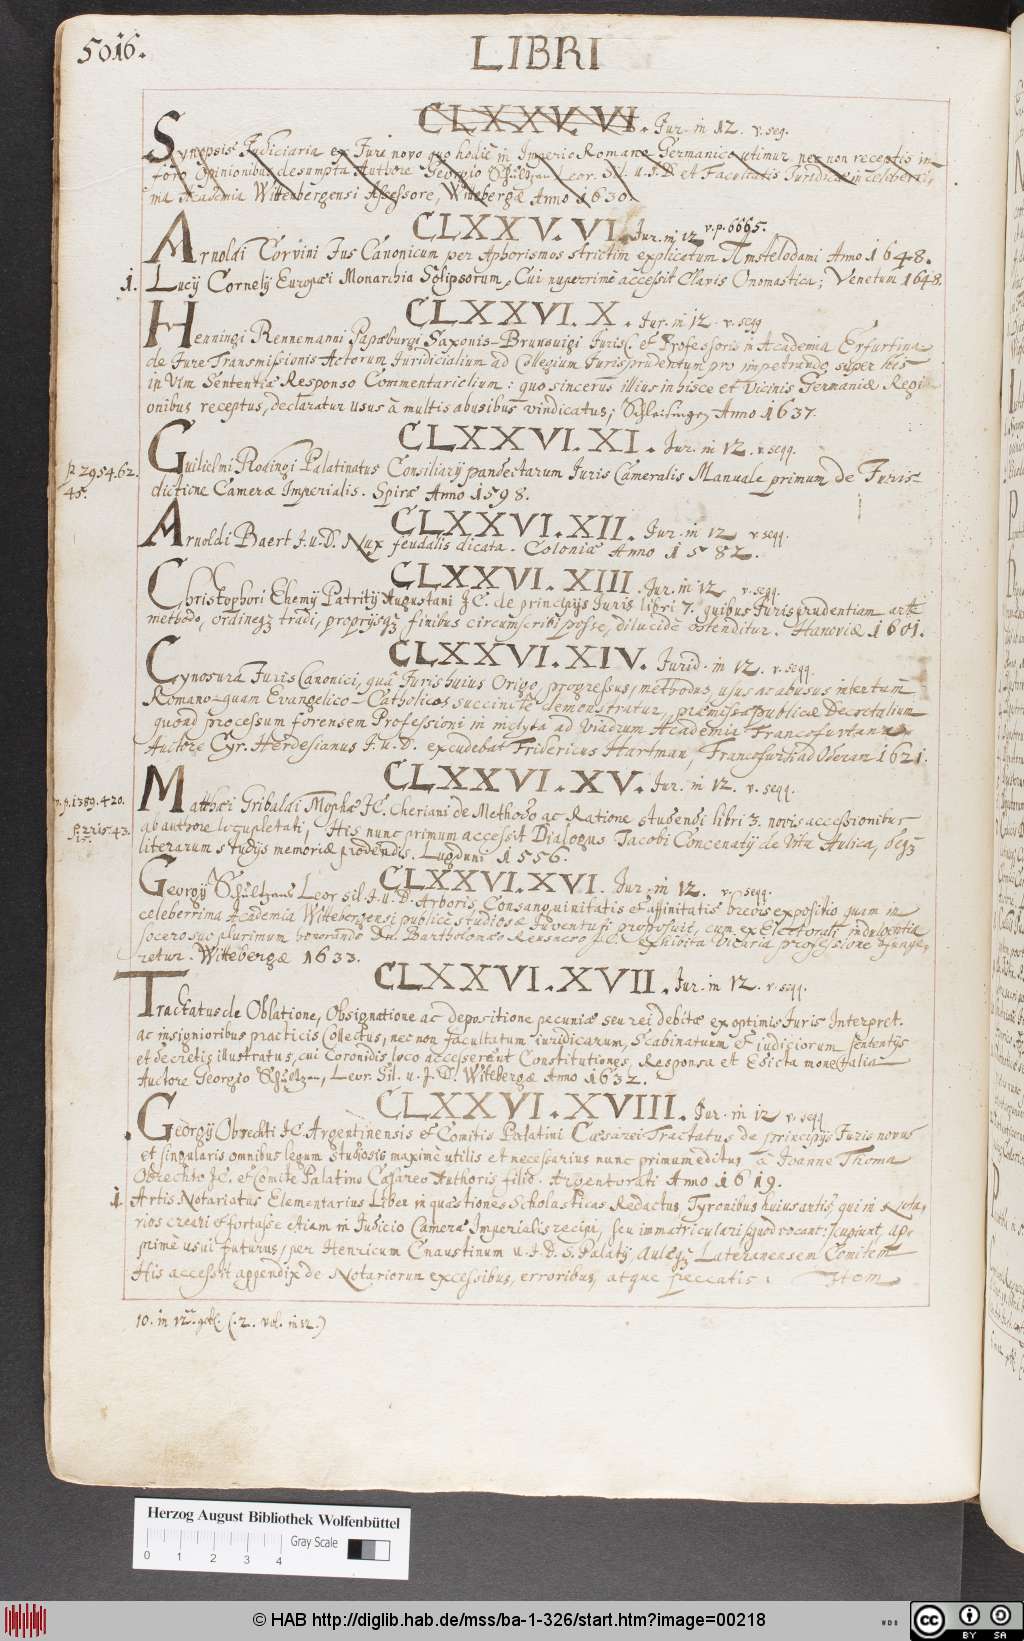 5016.
LIBRI
CLXXV. VI. Jur. in 12. v. seq.
Synopsis Judiciaria ex Jure novo quo hodie in Imperio Romano Germanico utimur nec non receptis in
foro Opinionibus desumpta Authore Georgio Schultzen Leor. Sil. u. J. D. et Facultatis Juridicæ in celeberri,
ma Academia Wittenbergensi Assessore, Wittebergæ Anno 1630.
CLXXV. VI. Jur. in 12 v. p. 6665.
Arnoldi Corvini Jus Canonicum per Aphorismos strictim explicatum Amstelodami Anno 1648.
1. Lucij Cornelij Europæi Monarchia Solipsorum, Cui nuperrimè accessit Clavis Onomastica; Venetum 1648.
CLXXVI. X. Jur. in 12. v. seqq
Henningi Rennemanni Papæburgi Saxonis-Brunsuigi Juris C. et Professoris in Academia Erfurtina
de Jure Transmissionis Actorum Juridicialium ad Collegium Jurisprudentum pro impetrando super his
in Vim Sententiæ Responso Commentariolium: quo sincerus illius in hisce et Vicinis Germaniæ Regi
onibus receptus, declaratur usus à multis abusibus vindicatus; Schleusingen Anno 1637.
CLXXVI. XI. Jur. in 12. v. seqq.
p 2954.62.
45.
Guilielmi Rodingi Palatinatus Consiliarij pandectarum Juris Cameralis Manuale primum de Juris
dictione Cameræ Imperialis. Spiræ Anno 1598.
CLXXVI. XII. Jur. in 12 v. seqq.
Arnoldi Baert J. u. D. Nux feudalis dicata. Coloniæ Anno 1582.
CLXXVI. XIII. Jur. in 12 v. seqq.
Christophori Ehemij Patritij Augustani JC. de principijs Juris libri 7. quibus Jurisprudentiam arte
methodo, ordineqz tradi, proprijsqz finibus circumscribi posse, dilucidè ostenditur. Hanoviæ 1601.
CLXXVI. XIV. Jurid. in 12. v. seqq.
Cynosura Juris Canonici, quâ Juris huius Origo, progressus, methodus, usus ac abusus inter tum
Romano-quam Evangelico-Catholicos succinctè demonstratur, præmissa publicæ Decretalium
quoad processum forensem Professioni in inclyta ad Viadrum Academia Francofurtana
Auctore Cyr. Herdesianus J. u. D. excudebat Fridericus Hartman, Francofurti ad Oderam 1621.
CLXXVI. XV. Jur. in 12. v. seqq.
v. p. 1389.420.
p. 2215.43.
15.
Matthæi Gribaldi Mophæ JC. Cheriani de Methodo ac Ratione studendi libri 3. novis accessionibus
ab authore locupletati, His nunc primum accessit Dialogus Jacobi Concenatij de Vita Aulica, deqz
literarum studijs memoriæ prodendis. Lugduni 1556.
CLXXVI. XVI. Jur. in 12. v. seqq.
Georgij Schultzens Leor sil. J. u. D. Arboris Consanguinitatis et affinitatis brevis expositio quam in
celeberrima Academia Wittebergensi publicè studiosæ Juventuti proposuit, cum ex Electorali indulgentia
socero suo plurimum honorando Dn. Bartholomæo Reusnero JC. exhibita Vicaria professione fungere,
retur. Wittebergæ 1633.
CLXXVI. XVII. Jur. in 12. v. seqq.
Tractatus de Oblatione, Obsignatione ac depositione pecuniæ seu rei debitæ ex optimis Juris Interpret.
ac insignioribus practicis Collectus, nec non facultatum iuridicarum, Scabinatuum et iudiciorum sententijs
et decretis illustratus, cui Coronidis loco accesserunt Constitutiones, Responsa et Edicta monetalia
Auctore Georgio Schultzen, Leor. Sil. u. J. D. Witebergæ Anno 1632.
CLXXVI. XVIII. Jur. in 12 v. seqq
Georgij Obrechti JC. Argentinensis et Comitis Palatini Cæsarei Tractatus de principijs Juris novus
et singularis omnibus legum studiosis maximè utilis et necessarius nunc primum editus à Joanne Thoma
Obrechto JC. et Comite Palatino Cæsareo Authoris filio. Argentorati Anno 1619.
1 Artis Notariatus Elementarius Liber in quæstiones Scholasticas Redactus, Tyronibus huius artis, qui in Nota,
rios creari et fortasse etiam in Judicio Cameræ Imperialis recipi, seu immatriculari (quod vocant) cupiunt, ap,
primè usui futurus, per Henricum Cnaustinum u. J. D. S. Palatij, Aulæqz Lateranensem Comitem
His accessit appendix de Notariorum excessibus, erroribus, atque peccatis. Item
10. in 12. (. 2. vol. in 12.)
Herzog August Bibliothek Wolfenbüttel
Gray Scale
0 1 2 3 4
© HAB http://diglib.hab.de/mss/ba-1-326/start.htm?image=00218
WDB
CC BY SA